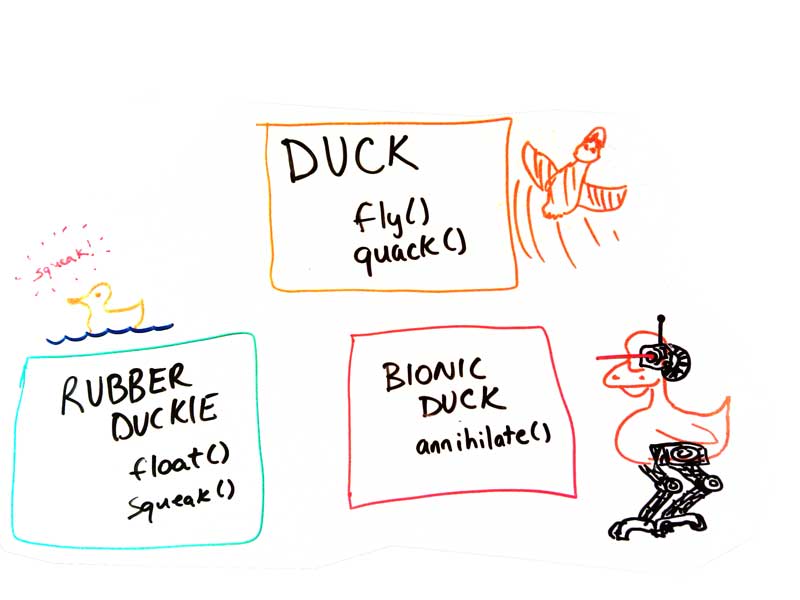 DUCK
fly()
quack()
squeak!
RUBBER
DUCKIE
float()
squeak()
BIONIC
DUCK
annihilate()